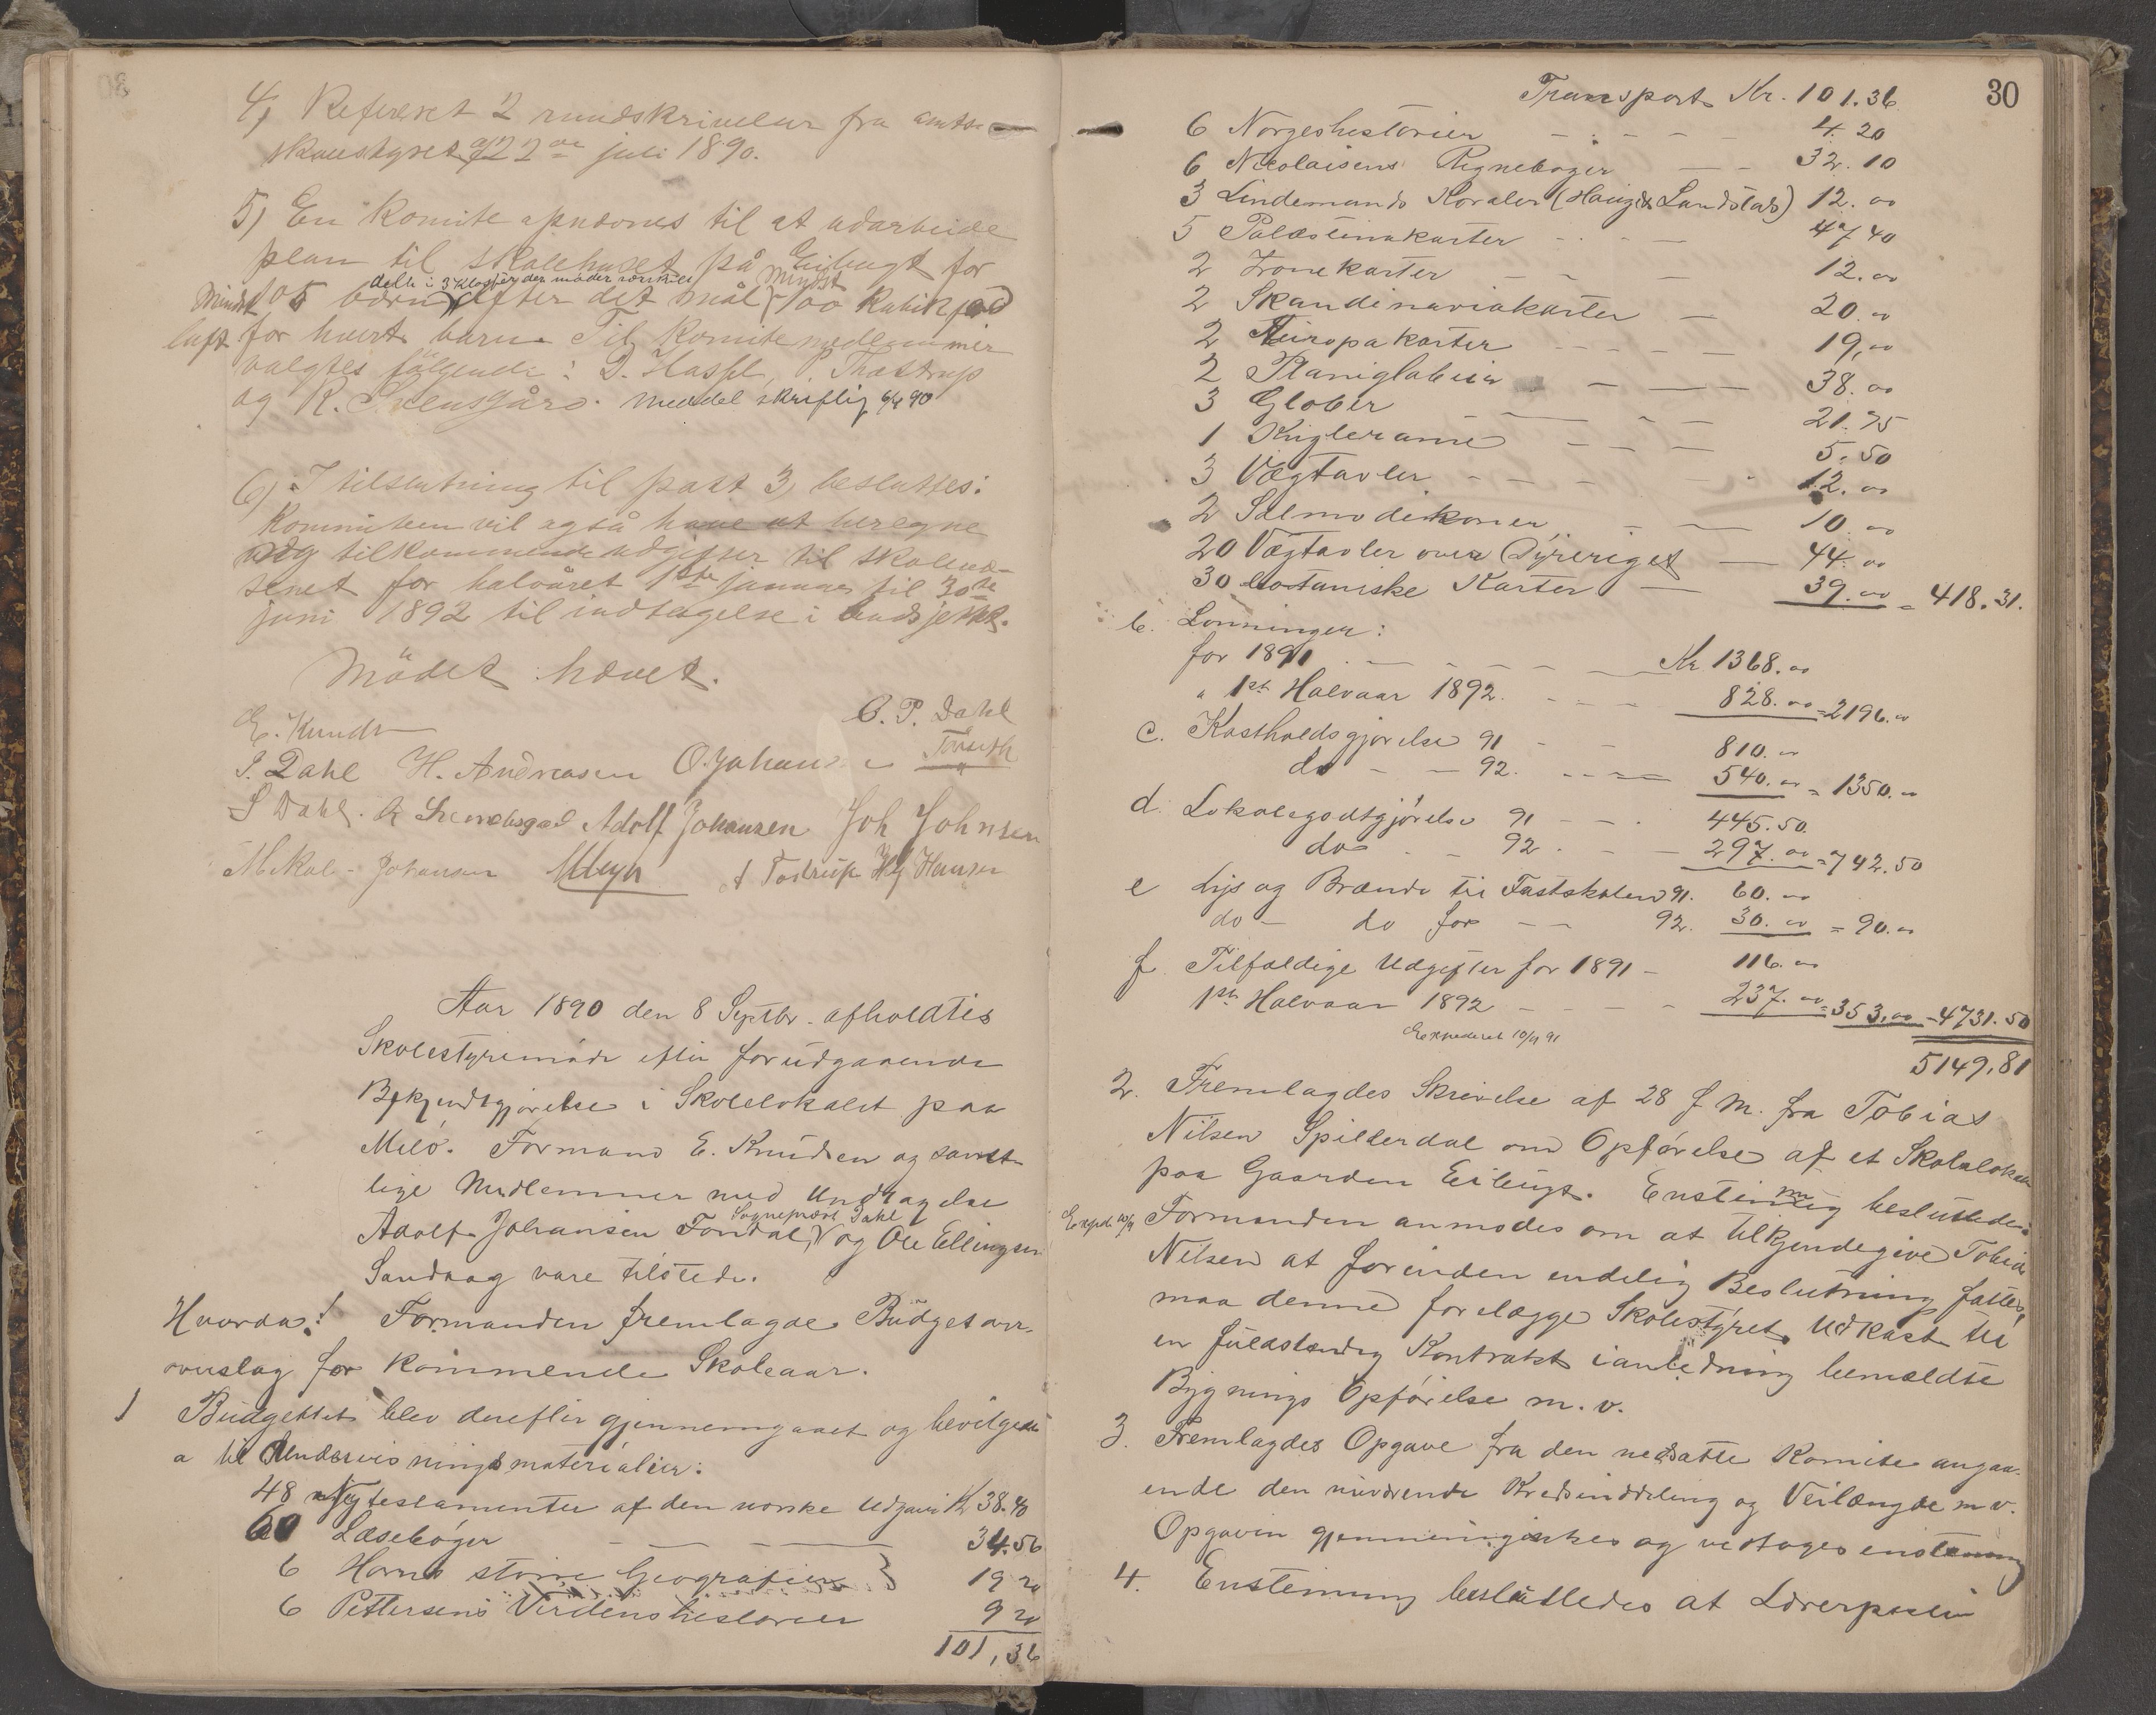 4) Refereret 2 rundskrivelser fra amts-
skolestyret af 22de juli 1890.
5) En komite opnævnes til at udarbeide
plan til skolehuset på Eilengt for
mindst 105 børn delte i 3 klasser der møder særskilt efter det mål mindst 100 kubikfod
luft for hvert barn. Til komitemedlemmer
valgtes følgende: D. Hassel, P. Thostrup
og R. Svensgård. meddel skriftlig 6/9 90
6) I tilslutning til post 3 besluttes:
Kommiteen vil også have at beregne
sig tilkommende udgifter til skolevæ-
senet for halvåret 1ste januar til 30te
juni 1892 til indtagelse i budsjettet.
Mödet hævet.
E. Knuds
O. P. Dahl
J. Dahl H. Andreasen O. Johans Forseth
S Dahl. Adolf Johansen Joh Johnsen
Mikal Johansen A Tostrup H J Hansen
Aar 1890 den 8 Septbr. afholdtes
Skolestyremøde efter forudgaaende
Bekjendtgjørelse i Skolelokalet paa
Melø. Formand E. Knudsen og samt-
lige Medlemmer med Undtagelse
Adolf Johansen Fondal, Sogneprest Dahl og Ole Ellingsen
Sandaag vare tilstede.
Hvorda: Formanden fremlagde Budget over-
overslag for kommende Skoleaar.
1 Budgettet blev derefter gjennemgaaet og bevilgedes
a til Undervisningsmaterialier:
48 Nytestamenter af den norske Udgave Kr 38.40
60 Læsebøger 34.56
6 Horns større Geografier 19 20
6 Pettersens Verdenshistorier 9 20
101,36
30
Transport Kr. 101.36
6 Norgeshistorier 4. 20
6 Nicolaisens Regnebøger 32. 10
3 Lindemands Koraler (Hauge & Landstads) 12. 00
5 Palæstinakarter 47 40
2 Zonekarter 12. 00
2 Skandinaviakarter 20. 00
2 Europakarter 19, 00
2 Planiglobier 38. 00
3 Glober 21. 75
1 Kugleramme 5. 50
3 Vægtavler 12. 00
2 Salmodikoner 10. 00
20 Vægtavler over Dyreriget 44. 00
30 botaniske Karter 39. 00 = 418. 31.
b. Lønninger:
for 1891 Kr. 1368. 00
" 1ste Halvaar 1892. 828. 00 = 2196. 00
c. Kostholdsgjørelse 91 810. 00
do 92. 540. 00 = 1350. 00
d. Lokalegodtgjørelse 91 445. 50.
do 92 297. 00 = 742. 50
e Lys og Brænde til Fastskolen 91. 60. 00
do do for 92. 30. 00 = 90. 00
f. Tilfældige Udgifter for 1891 116. 00
1ste Halvaar 1892 237. 00 = 353. 00 - 4731. 50
Expederet 10/9 91
5149, 81
2. Fremlagdes Skrivelse af 28 f. M. fra Tobias
Nilsen Spilderdal om Opførelse af et Skolelokale
paa Gaarden Eilengt. Enstemmig besluttedes:
Exped. 10/9 Formanden anmodes om at tilkjendegive Tobias
Nilsen at forinden endelig Beslutning fattes,
maa denne forelægge Skolestyret Udkast til
en fuldstændig Kontrakt i anledning bemeldte
Bygnings Opførelse m. v.
3. Fremlagdes Opgave fra den nedsatte Komite angaa-
ende den nuværende Kredsinddeling og Veilængde m v.
Opgaven gjennemgikkes og vedtoges enstemmig
4. Enstemmig besluttedes at Lærerposten